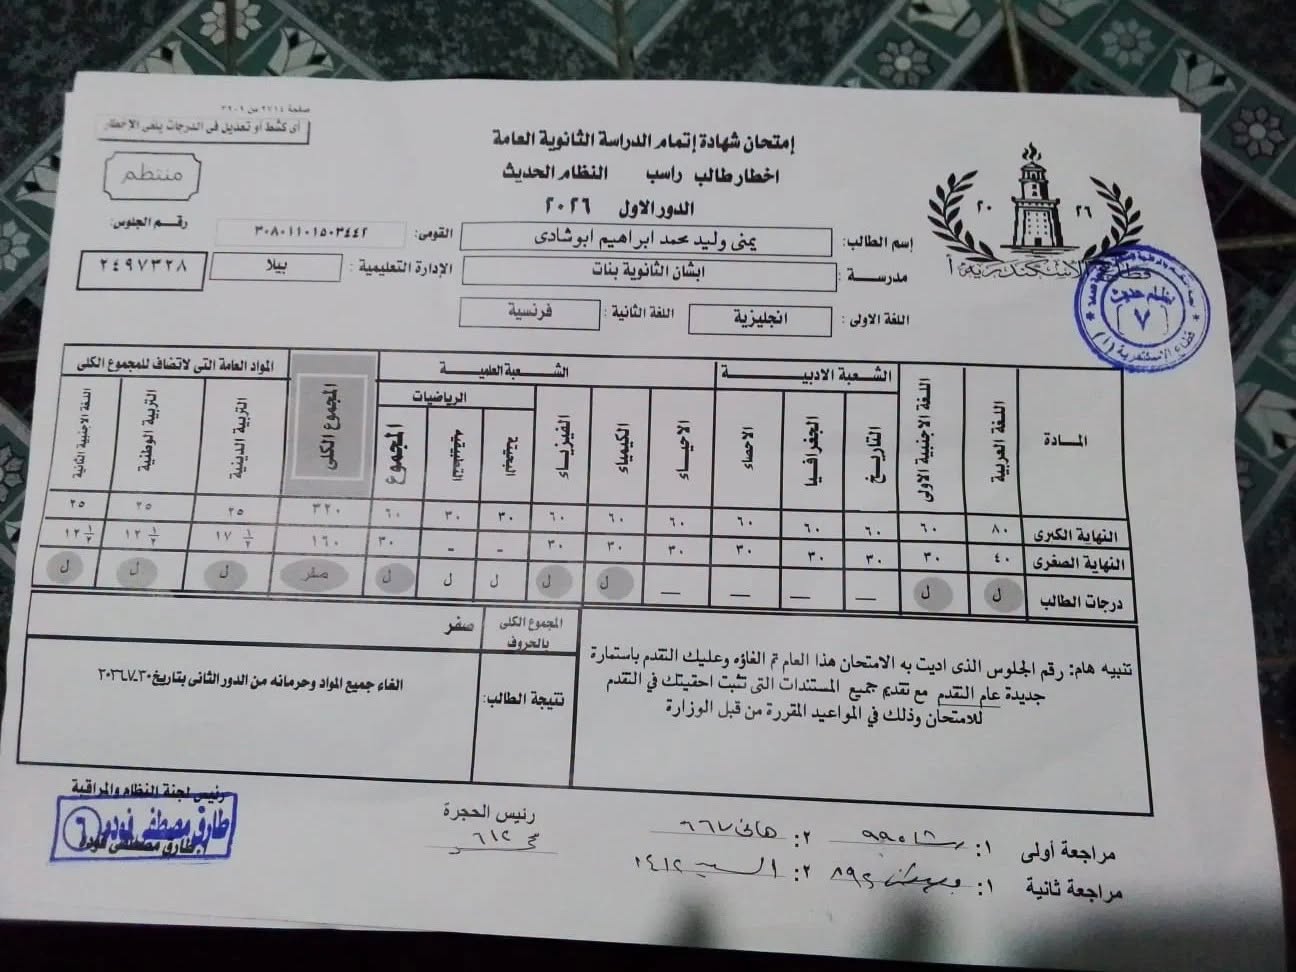 صفحة ٢٧١٤ من ٣٩٠٩
أى كشط أو تعديل فى الدرجات يلغى الاخطار
منتظم
إمتحان شهادة إتمام الدراسة الثانوية العامة
اخطار طالب راسب النظام الحديث
الدور الاول ٢٠٢٦
٢٠ ٢٦
اسم الطالب: يمنى وليد محمد ابراهيم ابوشادى القومى: ٣٠٨٠١١٠١٥٠٣٤٤٢ رقم الجلوس:
مدرسة: ابشان الثانوية بنات الإدارة التعليمية: بيلا ٢٤٩٧٣٢٨
اللغة الاولى: انجليزية اللغة الثانية: فرنسية
نظام حديث
٧
قطاع الاسكندرية (أ)
المادة اللغة العربية اللغة الاجنبية الاولى الشعبة الادبية الشعبة العلمية المجموع الكلى المواد العامة التى لاتضاف للمجموع الكلى
التاريخ الجغرافيا الاحصاء الاحياء الكيمياء الفيزياء الرياضيات التربية الدينية التربية الوطنية اللغة الاجنبية الثانية
المجموع
النهاية الكبرى ٨٠ ٦٠ ٦٠ ٦٠ ٦٠ ٦٠ ٦٠ ٦٠ ٣٠ ٣٠ ٦٠ ٣٢٠ ٢٥ ٢٥ ٢٥
النهاية الصغرى ٤٠ ٣٠ ٣٠ ٣٠ ٣٠ ٣٠ ٣٠ ٣٠ - - ٣٠ ١٦٠ ١٧ ١/٢ ١٢ ١/٢ ١٢ ١/٢
درجات الطالب ل ل — — — — ل ل ل ل ل صفر ل ل ل
المجموع الكلى بالحروف صفر
تنبيه هام: رقم الجلوس الذى اديت به الامتحان هذا العام تم الغاؤه وعليك التقدم باستمارة
جديدة عام التقدم مع تقديم جميع المستندات التى تثبت احقيتك في التقدم
للامتحان وذلك في المواعيد المقررة من قبل الوزارة
نتيجة الطالب: الغاء جميع المواد وحرمانه من الدور الثانى بتاريخ
رئيس لجنة النظام والمراقبة
طارق مصطفى فوده ٦
طارق مصطفى فودة
رئيس الحجرة
٦١٢
مراجعة أولى ١: ٢: هانى ٦٦٧
مراجعة ثانية ١: ٢: السيد